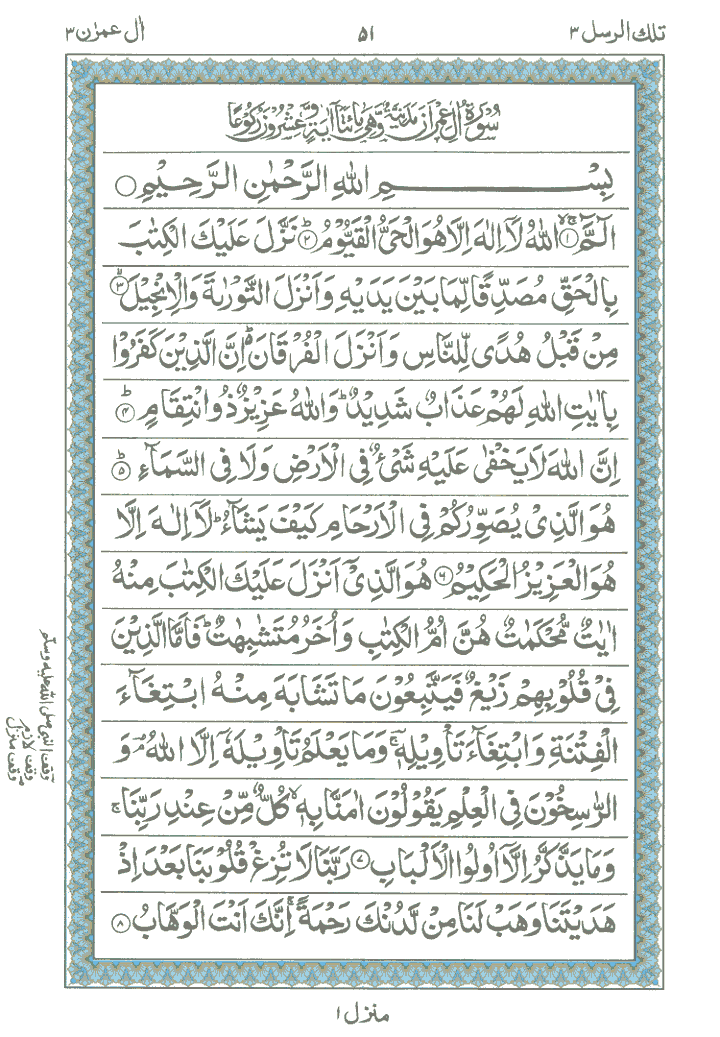 تلك الرسل ۳
۵۱
اٰل عمرٰن ۳
سُوْرَةُ اٰلِ عِمْرَانَ مَدَنِيَّةٌ وَّهِيَ مِائَتَا اٰيَةٍ وَّعِشْرُوْنَ رُكُوْعًا
بِسْمِ اللهِ الرَّحْمٰنِ الرَّحِيْمِ ۝
الٓمَّٓ ۙ﴿۱﴾ اللهُ لَاۤ اِلٰهَ اِلَّا هُوَ الْحَىُّ الْقَيُّوْمُ ؕ﴿۲﴾ نَزَّلَ عَلَيْكَ الْكِتٰبَ
بِالْحَقِّ مُصَدِّقًا لِّمَا بَيْنَ يَدَيْهِ وَاَنْزَلَ التَّوْرٰىةَ وَالْاِنْجِيْلَ ۙ﴿۳﴾
مِنْ قَبْلُ هُدًى لِّلنَّاسِ وَاَنْزَلَ الْفُرْقَانَ ؕ اِنَّ الَّذِيْنَ كَفَرُوْا
بِاٰيٰتِ اللهِ لَهُمْ عَذَابٌ شَدِيْدٌ ؕ وَاللهُ عَزِيْزٌ ذُو انْتِقَامٍ ؕ﴿۴﴾
اِنَّ اللهَ لَا يَخْفٰى عَلَيْهِ شَىْءٌ فِى الْاَرْضِ وَلَا فِى السَّمَآءِ ؕ﴿۵﴾
هُوَ الَّذِىْ يُصَوِّرُكُمْ فِى الْاَرْحَامِ كَيْفَ يَشَآءُ ؕ لَاۤ اِلٰهَ اِلَّا
هُوَ الْعَزِيْزُ الْحَكِيْمُ ﴿۶﴾ هُوَ الَّذِىْۤ اَنْزَلَ عَلَيْكَ الْكِتٰبَ مِنْهُ
اٰيٰتٌ مُّحْكَمٰتٌ هُنَّ اُمُّ الْكِتٰبِ وَاُخَرُ مُتَشٰبِهٰتٌ ؕ فَاَمَّا الَّذِيْنَ
فِىْ قُلُوْبِهِمْ زَيْغٌ فَيَتَّبِعُوْنَ مَا تَشَابَهَ مِنْهُ ابْتِغَآءَ
الْفِتْنَةِ وَابْتِغَآءَ تَاْوِيْلِهٖ ۚ وَمَا يَعْلَمُ تَاْوِيْلَهٗۤ اِلَّا اللهُ ۘ وَ
الرّٰسِخُوْنَ فِى الْعِلْمِ يَقُوْلُوْنَ اٰمَنَّا بِهٖ ۙ كُلٌّ مِّنْ عِنْدِ رَبِّنَا ۚ
وَمَا يَذَّكَّرُ اِلَّاۤ اُولُوا الْاَلْبَابِ ﴿۷﴾ رَبَّنَا لَا تُزِغْ قُلُوْبَنَا بَعْدَ اِذْ
هَدَيْتَنَا وَهَبْ لَنَا مِنْ لَّدُنْكَ رَحْمَةً ۚ اِنَّكَ اَنْتَ الْوَهَّابُ ﴿۸﴾
وقف النبى صلى الله عليه وسلم
وقف لازم
وقف منزل
منزل ۱